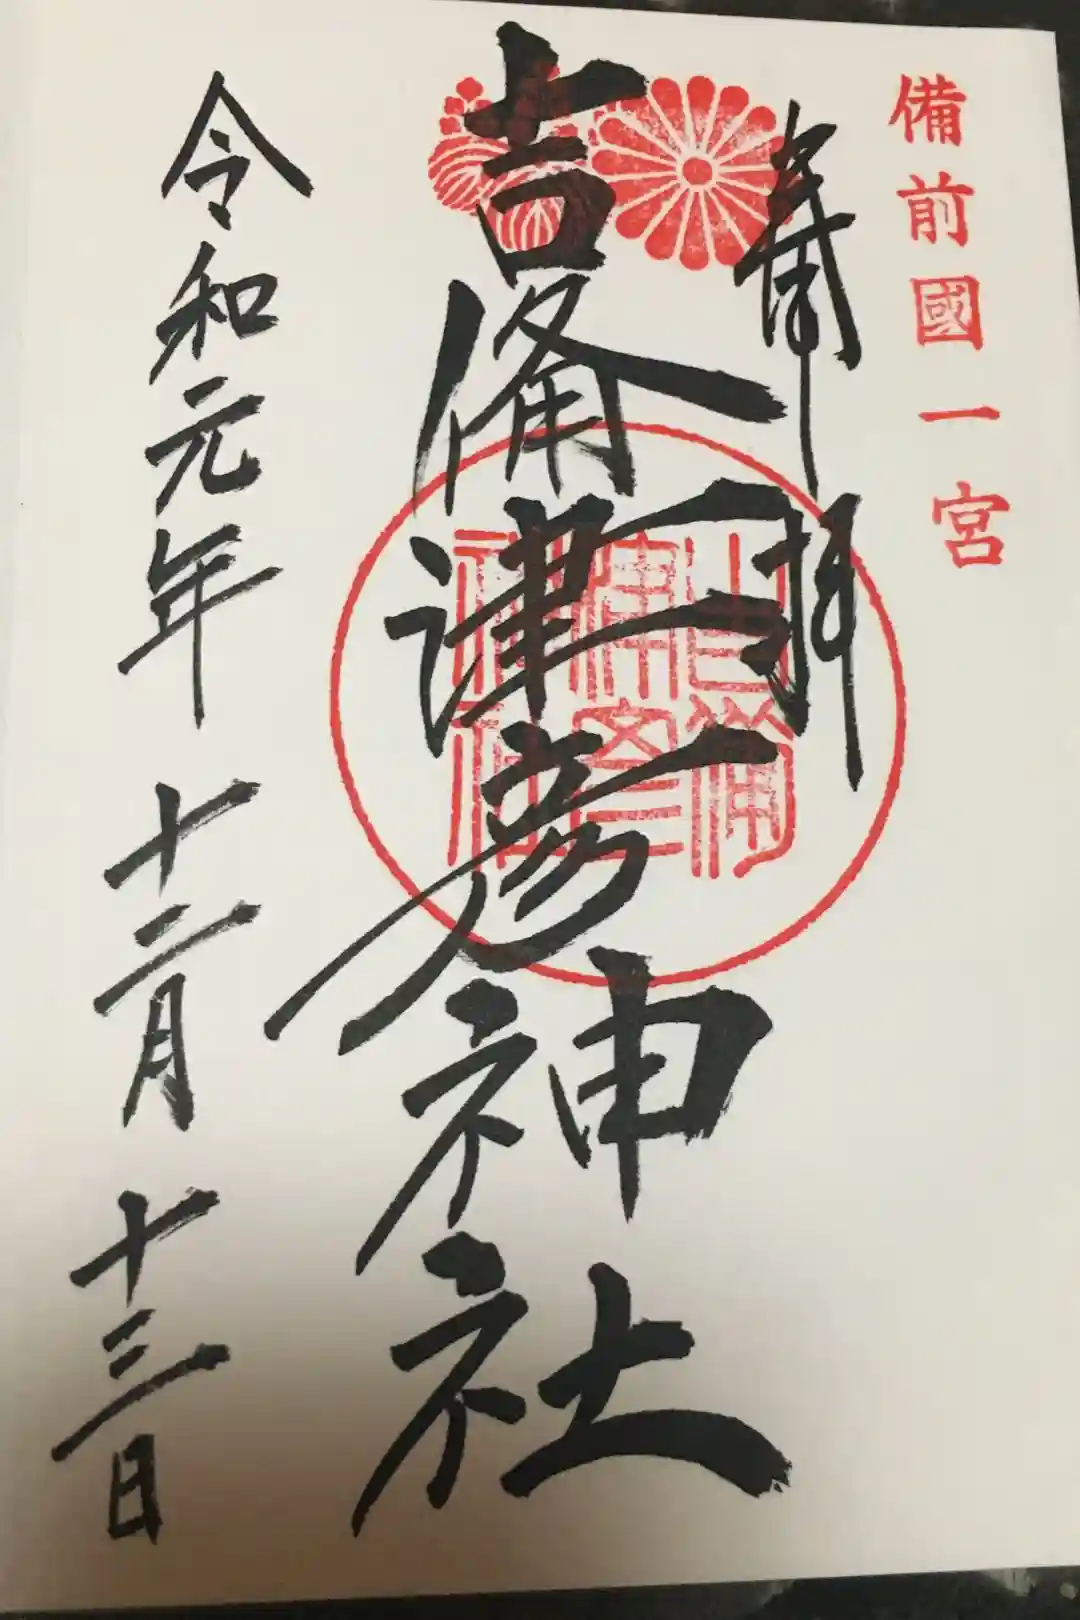 備前國一宮
奉拝
吉備津彦神社
吉備津彦神社
令和元年十二月十三日